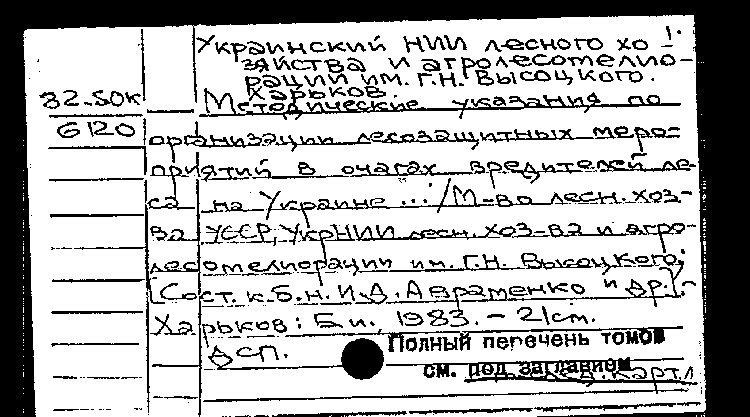 Украинский НИИ лесного хо- 1.
зяйства и агролесомелио-
рации им. Г.Н. Высоцкого.
Харьков.
82.SOK Методические указания по
G120 организации лесозащитных меро-
приятий в очагах вредителей ле-
са на Украине .../М-во лесн. хоз-
ва УССР, УкрНИИ лесн. хоз-ва и агро-
лесомелиорации им. Г.Н. Высоцкого;
[Сост. к.б.н. И.Д. Авраменко и др.].-
Харьков: Б.и., 1983. - 21см.
ДСП.
Полный перечень томов
см. под заглавием
след. карт.